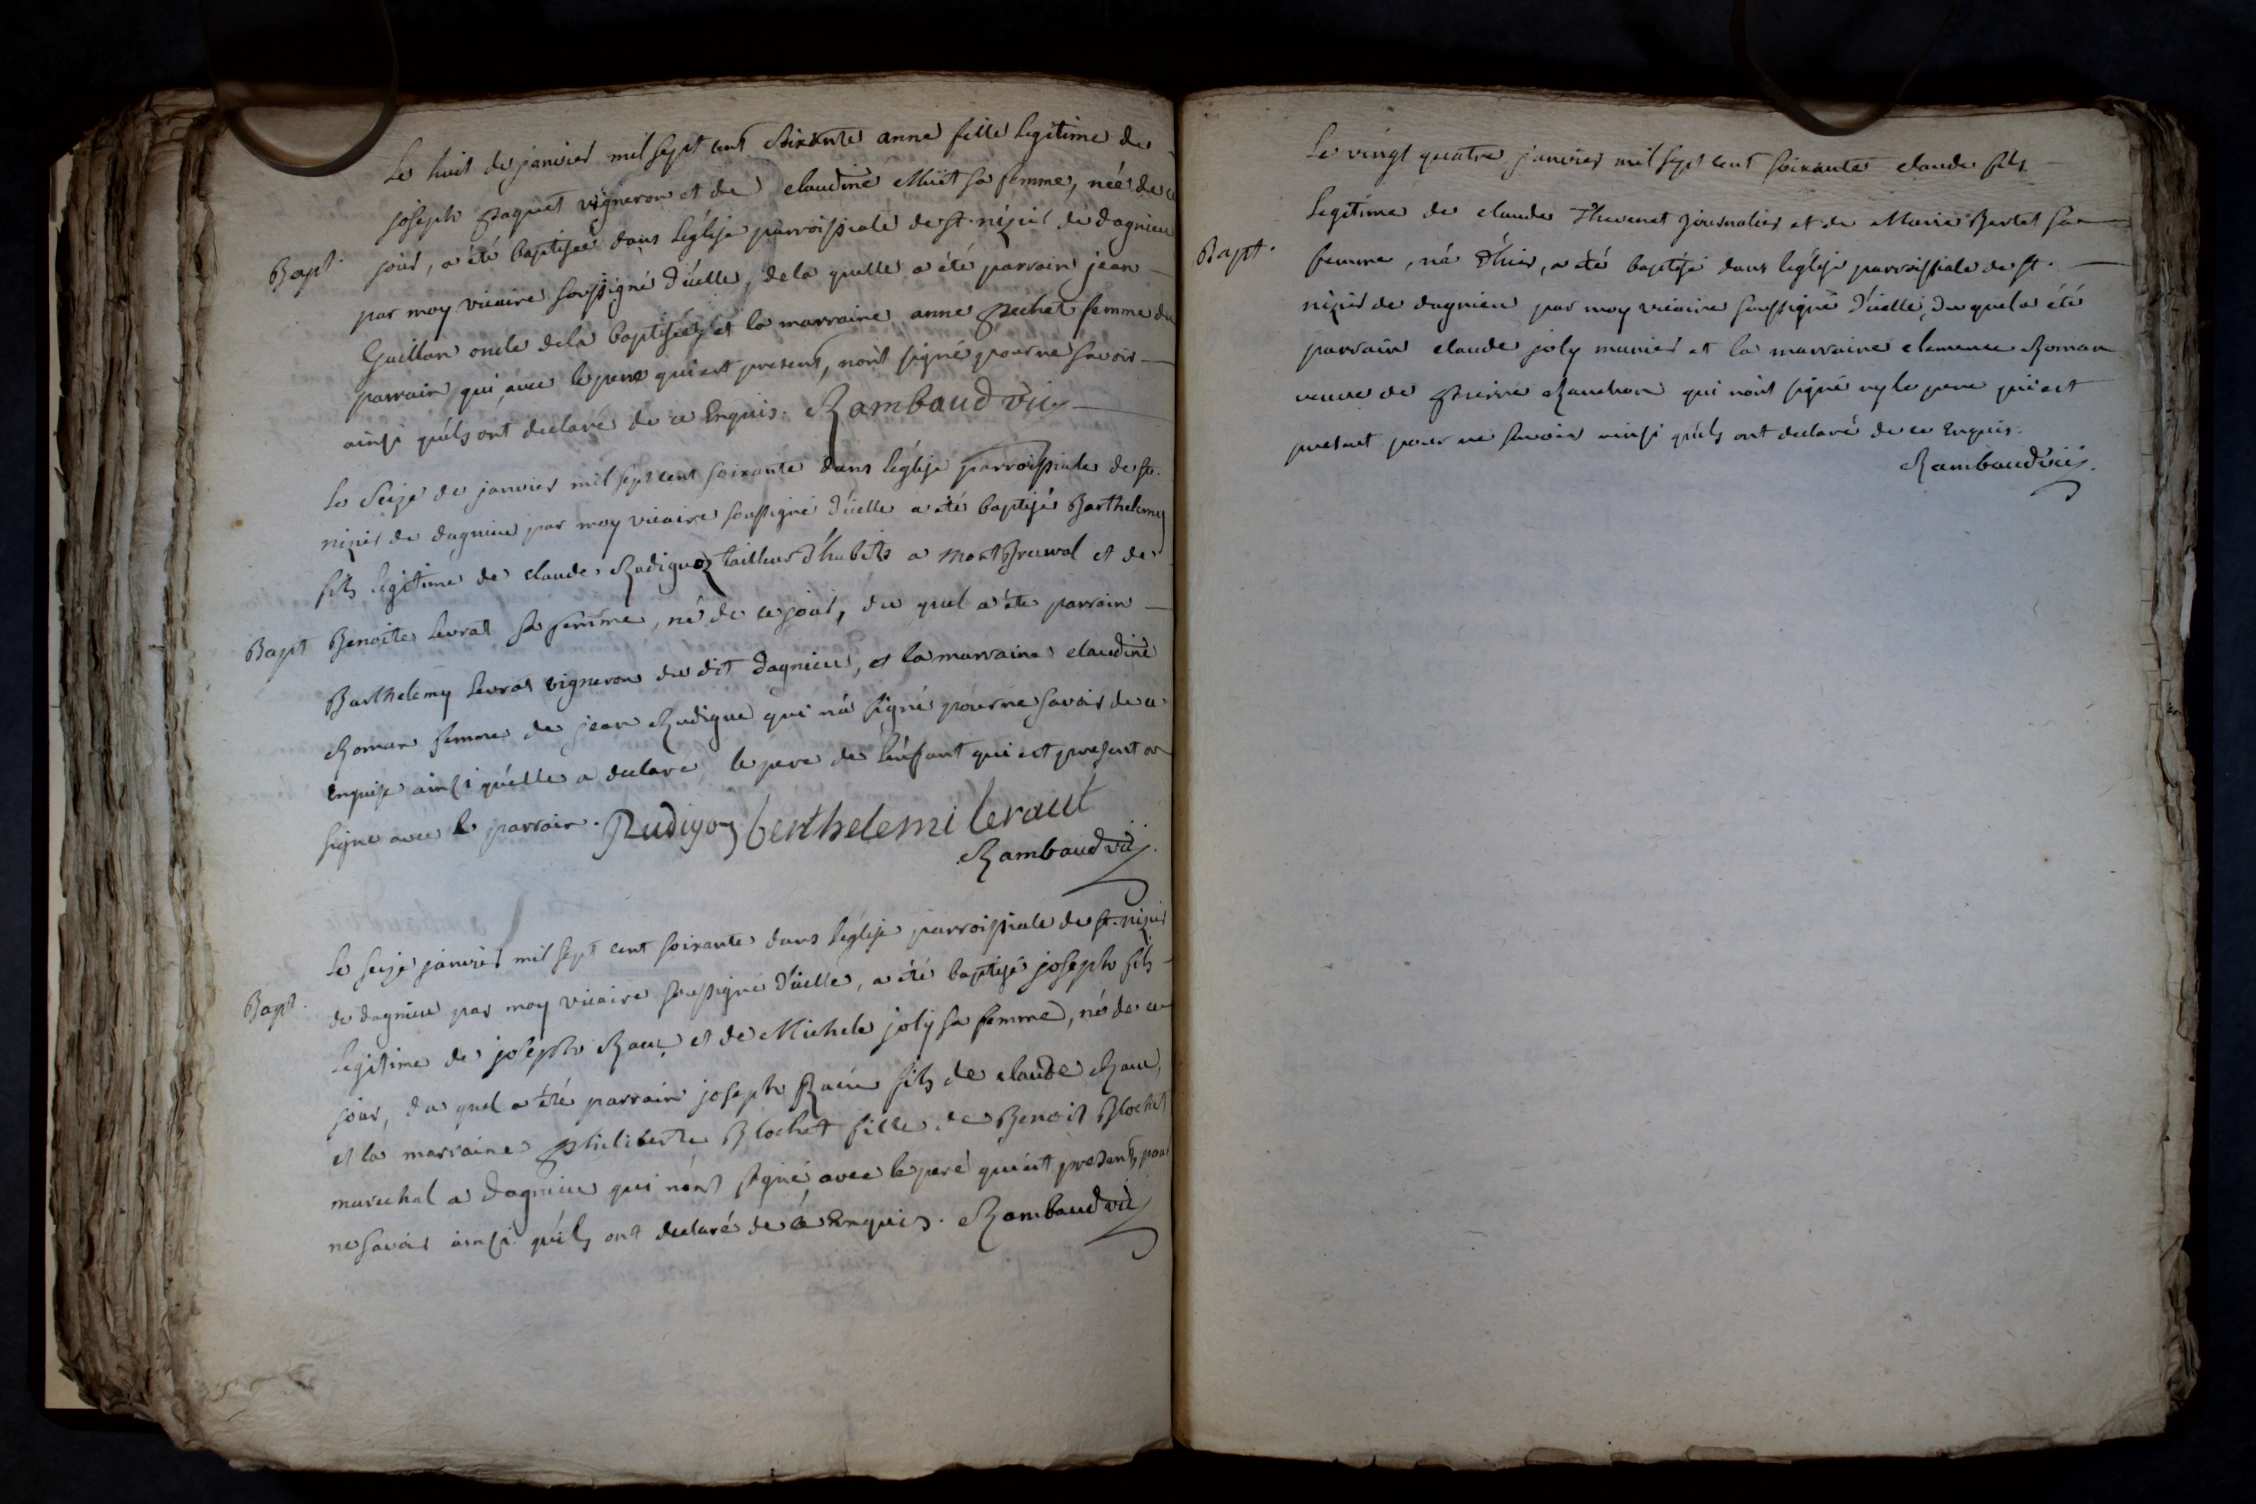 Le huit de janvier mil sept cent soixante anne fille legitime de
joseph paquet vigneron et de claudine Muet sa femme, née de ce
Bapt. jour, a été baptisée dans l'église parroissiale de st. nizier de dagnieu
par moy vicaire soussigné d'icelle, de la quelle a été parrain jean
Guillon oncle de la baptisée, et la marraine anne pechet femme du
parrain qui, avec le pere qui est present, n'ont signé pour ne savoir
ainsi qu'ils ont declaré de ce Enquis. Rambaud vic
Le seize de janvier mil sept cent soixante dans l'église parroissiale de st.
nizier de dagnieu par moy vicaire soussigné d'icelle a été baptisé Barthelemy
fils legitime de claude Rudiguoz tailleur d'habits a Montbreval et de
Bapt Benoite Levrat sa femme, né de ce jour, du quel a été parrain
Barthelemy Levrat vigneron du dit dagnieu, et la marraine claudine
Roman femme de jean Rudigue qui n'a signé pour ne savoir de ce
Enquise ainsi qu'elle a declaré, le pere de l'enfant qui est present a
signé avec le parrain. Rudigoz berthelemi leraut
Rambaud vic
Le seize janvier mil sept cent soixante dans l'église parroissiale de st. nizier
Bapt. de dagnieu par moy vicaire soussigné d'icelle, a été baptisé joseph fils
legitime de joseph Raux et de Michele joly sa femme, né de ce
jour, du quel a été parrain joseph Raux fils de claude Raux,
et la marraine philiberte Blochet fille de Benoit Blochet
marechal a dagnieu qui n'ont signé, avec le pere qui est present, pour
ne savoir ainsi qu'ils ont declaré de ce Enquis. Rambaud vic
Le vingt quatre janvier mil sept cent soixante claude fils
legitime de claude Thevenet journalier et de Marie Bertet sa
Bapt. femme, né d'hier, a été baptisé dans l'église parroissiale de st.
nizier de dagnieu par moy vicaire soussigné d'icelle, du quel a été
parrain claude joly munier et la marraine clemence Roman
veuve de pierre Ranchon qui n'ont signé ny le pere qui est
present pour ne savoir ainsi qu'ils ont declaré de ce Enquis.
Rambaud vic.